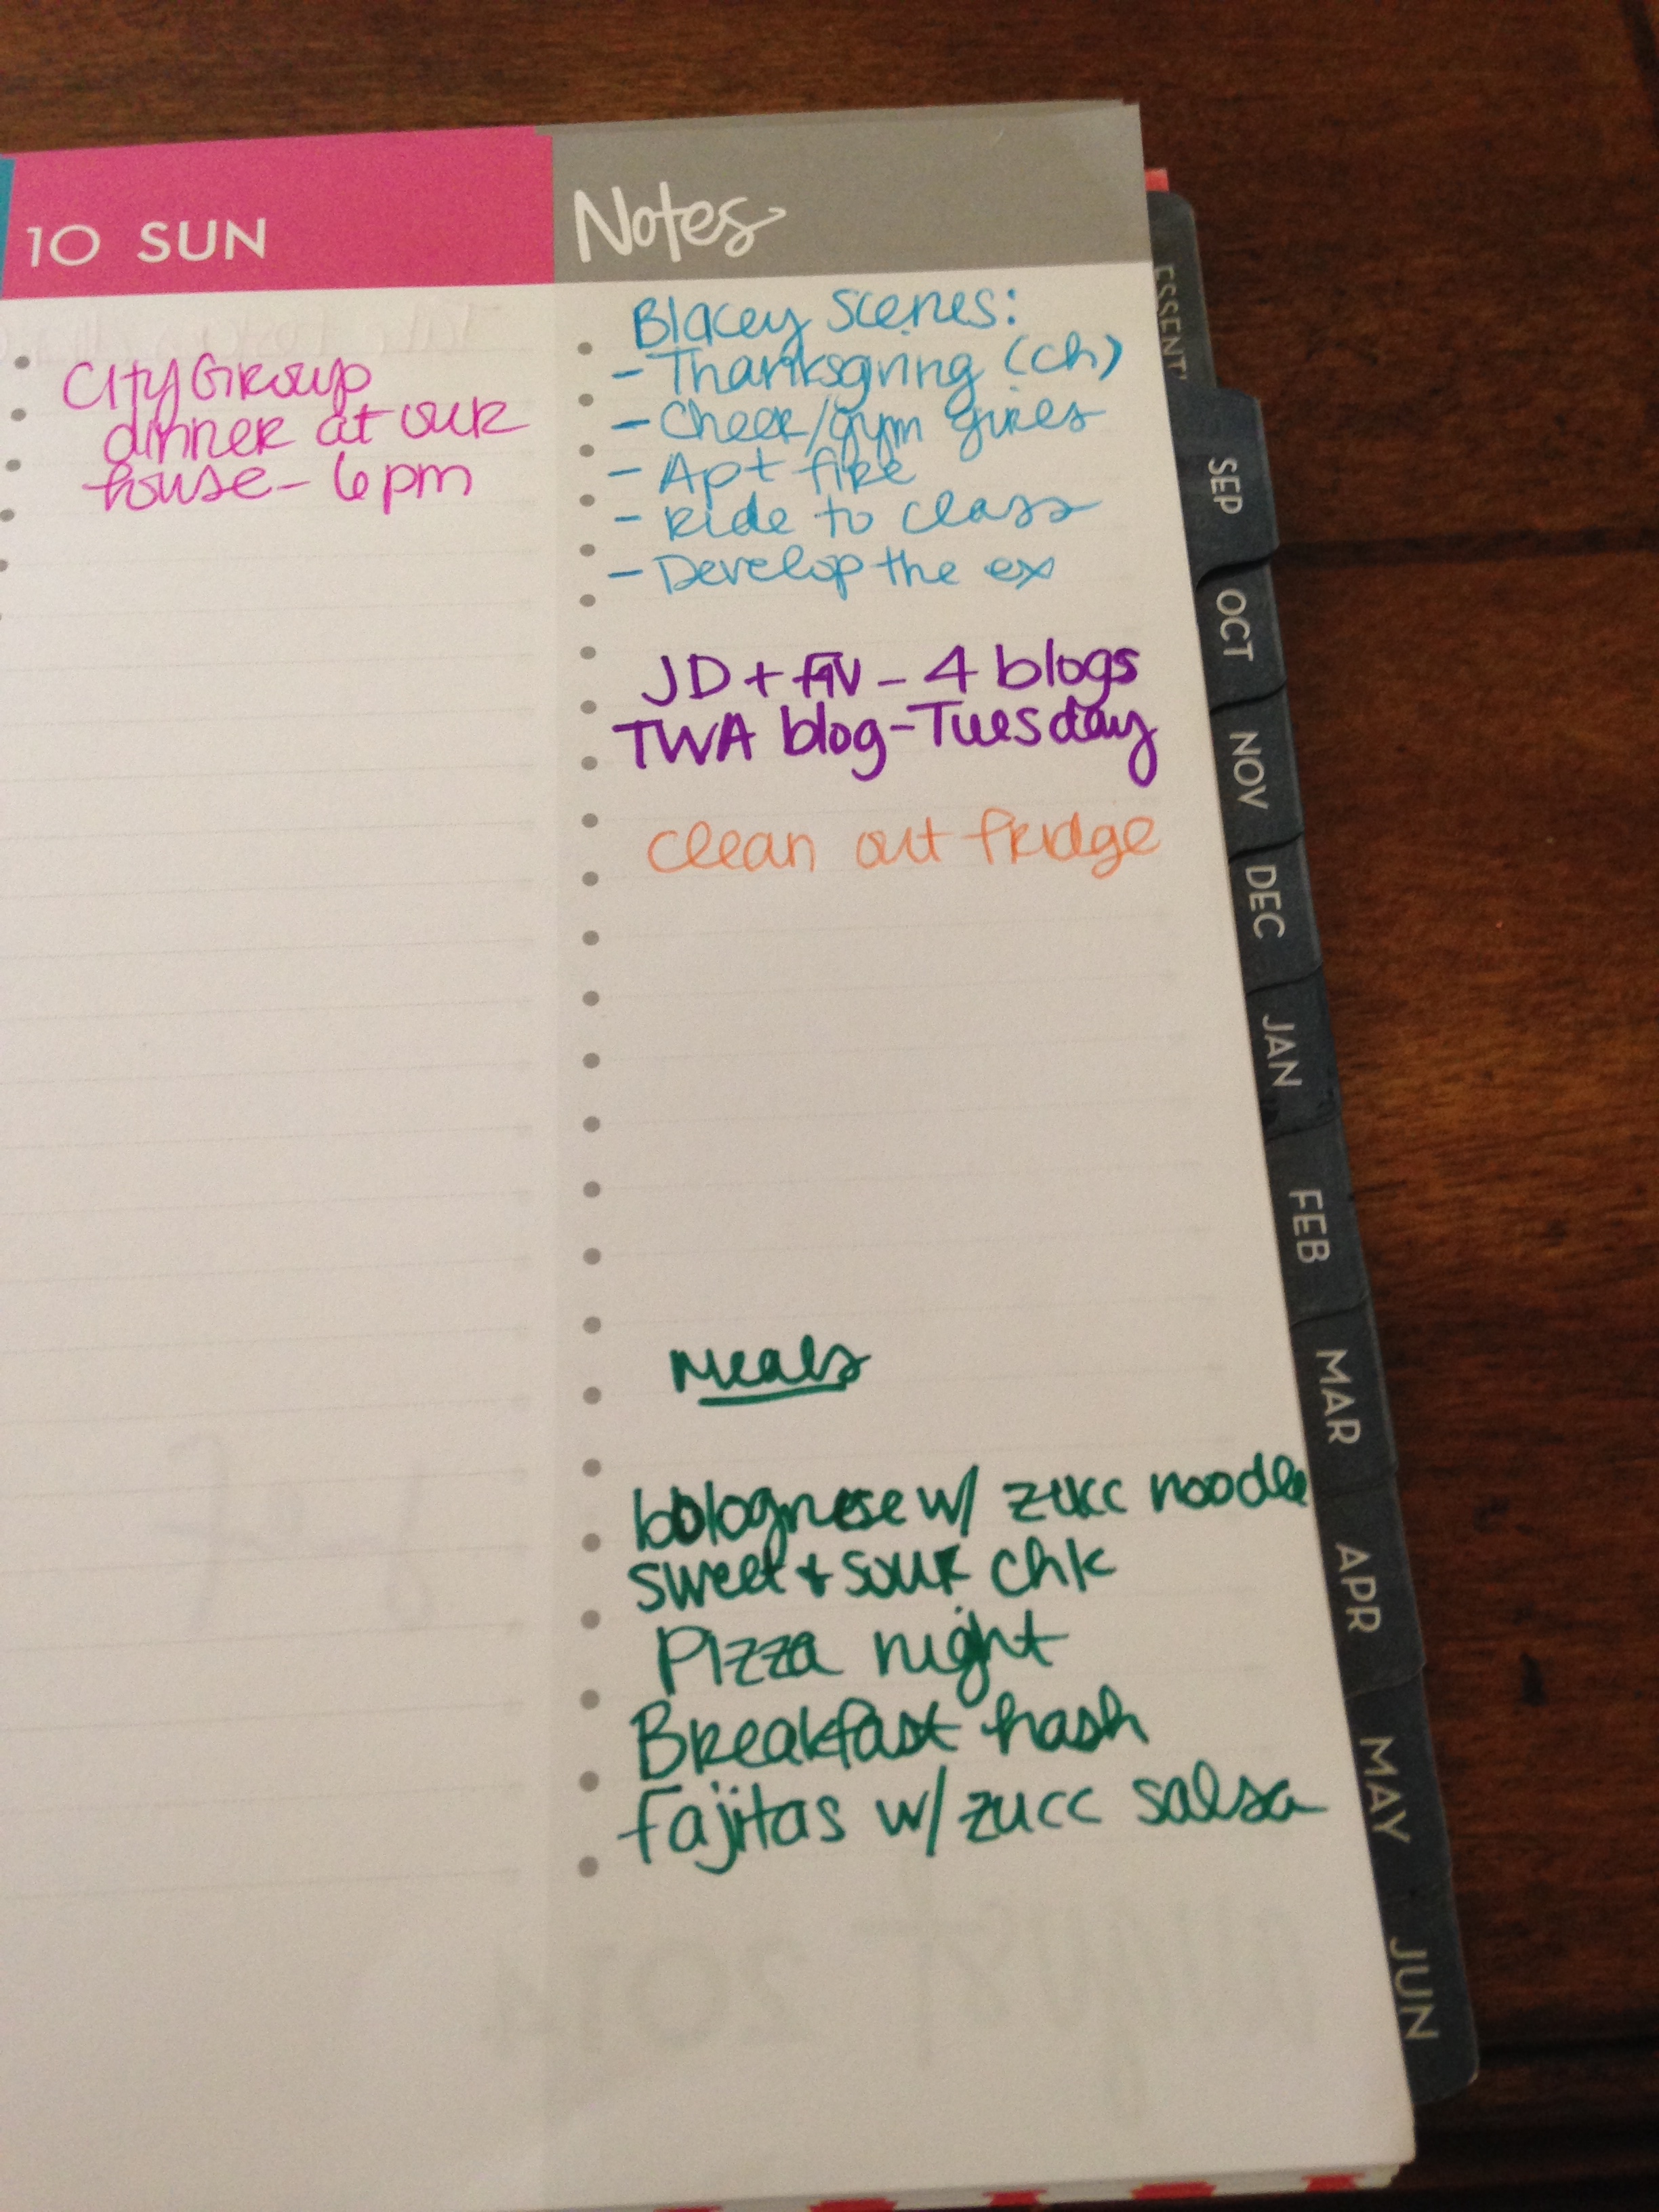 10 SUN
City Group
dinner at our
house - 6pm
Notes
Blacey Scenes:
- Thanksgiving (ch)
- Cheer/gym gives
- Apt fire
- Ride to class
- Develop the ex
JD + - 4 blogs
TWA blog - Tuesday
clean out fridge
Meals
bolognese w/ zucc noodle
sweet + sour chk
Pizza night
Breakfast hash
Fajitas w/ zucc salsa
August 2014
ESSENT
SEP
OCT
NOV
DEC
JAN
FEB
MAR
APR
MAY
JUN